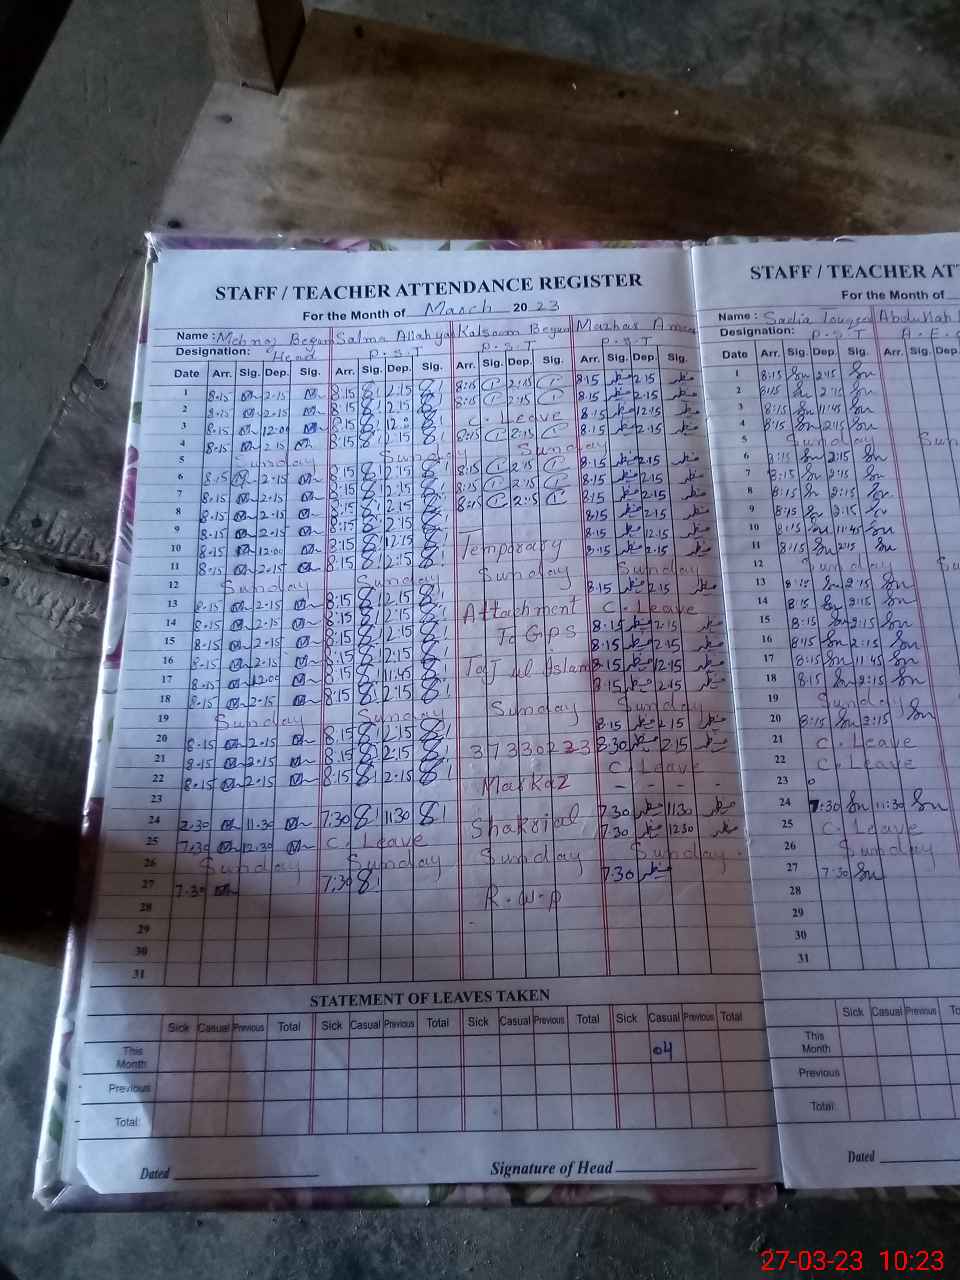 STAFF / TEACHER ATTENDANCE REGISTER
For the Month of March 2023
Name : Mehnaz Begum Salma Allahyar Kalsoom Begum Mazhar
Designation: Head P.S.T P.S.T P.S.T
Date Arr. Sig. Dep. Sig. Arr. Sig. Dep. Sig. Arr. Sig. Dep. Sig. Arr. Sig. Dep. Sig.
1 8.15 2.15 8:15 2:15 8:15 2:15 8.15 2.15
2 8.15 2.15 8:15 2:15 8:15 2:15 8.15 2.15
3 8.15 12:00 8:15 12:0 C. Leave 8.15 12.15
4 8.15 2.15 8:15 2:15 8:15 2:15 8.15 2.15
5 Sunday Sunday Sunday
6 8.15 2.15 8:15 2:15 8:15 2:15 8.15 2.15
7 8.15 2.15 8:15 2:15 8:15 2:15 8.15 2.15
8 8.15 2.15 8:15 2:15 8:15 2:15 8.15 2.15
9 8.15 2.15 8:15 2:15 8.15 2.15
10 8.15 12:00 8:15 12:15 Temporary 8.15 12.15
11 8.15 2.15 8:15 2:15 8.15 2.15
12 Sunday Sunday Sunday Sunday
13 8.15 2.15 8:15 2:15 8.15 2.15
14 8.15 2.15 8:15 2:15 Attachment C. Leave
15 8.15 2.15 8:15 2:15 To GPS 8.15 2.15
16 8.15 2.15 8:15 2:15 8.15 2.15
17 8.15 12:00 8:15 11:45 Taj ul Islam 8.15 12.15
18 8.15 2.15 8:15 2:15 8.15 2.15
19 Sunday Sunday Sunday Sunday
20 8.15 2.15 8:15 2:15 8.15 2.15
21 8.15 2.15 8:15 2:15 37330223 8.30 2.15
22 8.15 2.15 8:15 2:15 Markaz C. Leave
23 - - - -
24 7.30 11.30 7:30 11:30 Shakrial 7.30 11.30
25 7.30 12.30 C. Leave 7.30 12.30
26 Sunday Sunday Sunday Sunday
27 7.30 7:30 R.w.p 7.30
28
29
30
31
STATEMENT OF LEAVES TAKEN
Sick Casual Previous Total Sick Casual Previous Total Sick Casual Previous Total Sick Casual Previous Total
This Month 04
Previous
Total:
Dated Signature of Head
STAFF / TEACHER
For the Month of
Name : Sadia Abdullah
Designation: P.S.T
Date Arr. Sig. Dep. Sig. Arr. Sig. Dep.
1 8:15 2:15
2 8:15 2:15
3 8:15 11:45
4 8:15 2:15
5 Sunday
6 8:15 2:15
7 8:15 2:15
8 8:15 2:15
9 8:15 2:15
10 8:15 11:45
11 8:15 2:15
12 Sunday
13 8:15 2:15
14 8:15 2:15
15 8:15 2:15
16 8:15 2:15
17 8:15 11:45
18 8:15 2:15
19 Sunday
20 8:15 2:15
21 C. Leave
22 C. Leave
23
24 7:30 11:30
25 C. Leave
26 Sunday
27 7:30
28
29
30
31
Sick Casual Previous
This Month
Previous
Total:
Dated
27-03-23 10:23